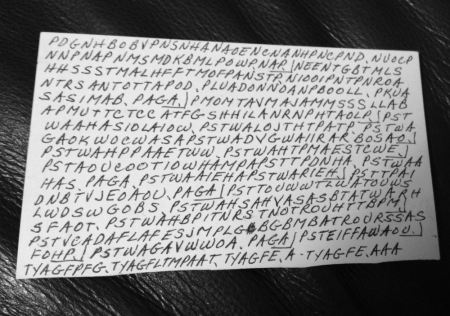 PDGNHBOBVPNSNHANAOENCNANHPNCPND, NUOCP
NNPNAPNMSMDKBMLPOWPNAP, NEENTGBTMLS
HHSSSTMALHFFTMOFPANSTP, NIOOIPNTPNROA
NTRSANTOTTAPOD, PLUADONNOANPBOOLL, PKUA
SASIMAB, PAGA, PMOMTAVMAJAMMSSSLLAB
APMUTTCTCC ATFGSHHILANRNPHTAOLP, PST
WAAHASIOLAIOW, PSTWALOJTHTPATP, PSTWA
GAOKWOCWASAPSTWADVGWAHIRAR BOSAO,
PSTWAHPPAAETWW, PSTWAHTPMAESTCWE
PSTAOUCOOTIOWWAMPAPSTTPDNHA, PSTWAA
HAS, PAGA, PSTWAAIEHAPSTWARIEH, PSTTPAI
DNBTVJEOAOU, PAGA, PSTTOUWWTLWATOUWS
LWDSWGOBS, PSTWAHSAHVASASBTATWAPRH
SFAOT, PSTWAHBPITNRSTNOTROUHTTBPM
PSTVCADAFLAFESJMPLGBGBMBATROURSSAS
FOHP, PSTWAGAVWWOA, PAGA, PSTEIFFAWAOU,
TYAGFPFG, TYAGFLTMPAAT, TYAGFE, A - TYAGFE, AAA